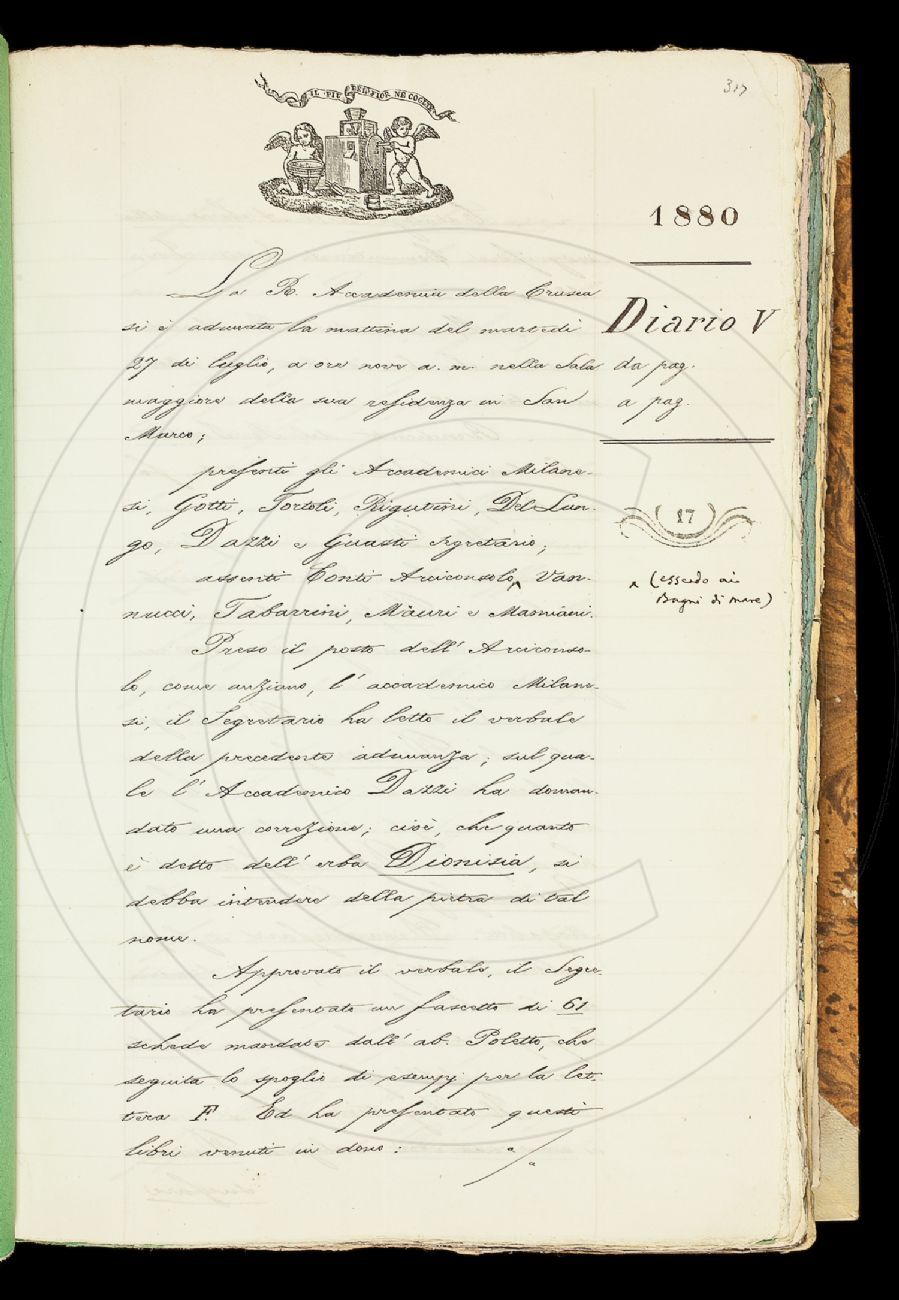 317
IL PIÙ BEL FIOR NE COGLIE
1880
Diario V
da pag.
a pag.
(17)
^ (essendo ai
Bagni di mare)
La R. Accademia della Crusca
si è adunata la mattina del martedì
27 di luglio, a ore nove a. m. nella Sala
maggiore della sua residenza in San
Marco;
presenti gli Accademici Milane-
si, Gotti, Tortoli, Rigutini, Del Lun-
go, Dazzi e Guasti Segretario;
assenti Conti Arciconsolo ^, Van-
nucci, Tabarrini, Mauri e Mamiani.
Preso il posto dell' Arciconso-
lo, come anziano, l' accademico Milane-
si, il Segretario ha letto il verbale
della precedente adunanza; sul qua-
le l' Accademico Dazzi ha doman-
dato una correzione; cioè, che quanto
è detto dell' erba Dionisia, si
debba intendere della pietra di tal
nome.
Approvato il verbale, il Segre-
tario ha presentato un fascetto di 61
schede mandate dall' ab. Poletto, che
seguita lo spoglio di esempj per la let-
tera F. Ed ha presentato questi
libri venuti in dono: ./.